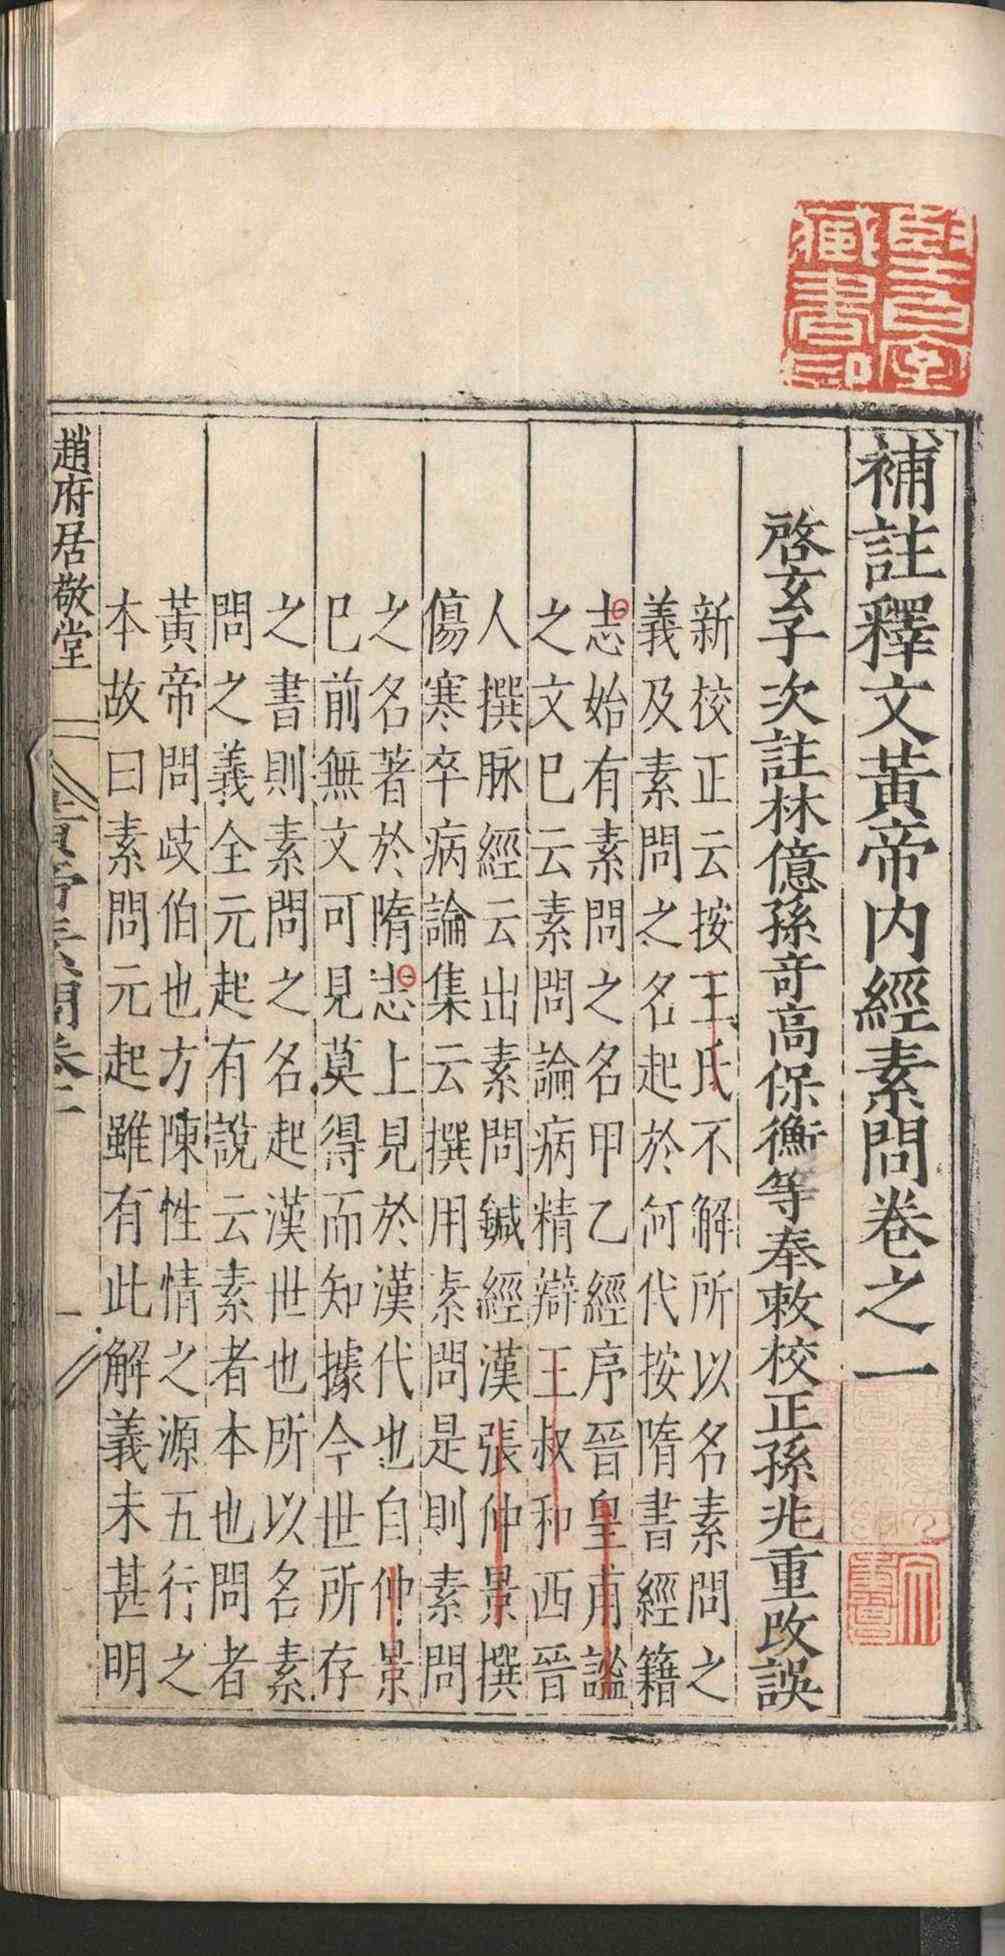 補註釋文黃帝内經素問卷之一
啓玄子次註林億孫竒高保衡等奉敕校正孫兆重改誤
新校正云按王氏不解所以名素問之
義及素問之名起於何代按隋書經籍
志始有素問之名甲乙經序晉皇甫謐
之文已云素問論病精辯王叔和西晉
人撰脉經云出素問鍼經漢張仲景撰
傷寒卒病論集云撰用素問是則素問
之名著於隋志上見於漢代也自仲景
已前無文可見莫得而知據今世所存
之書則素問之名起漢世也所以名素
問之義全元起有說云素者本也問者
黃帝問歧伯也方陳性情之源五行之
本故曰素問元起雖有此解義未甚明
趙府居敬堂
黃帝素問卷一
一
藏書印